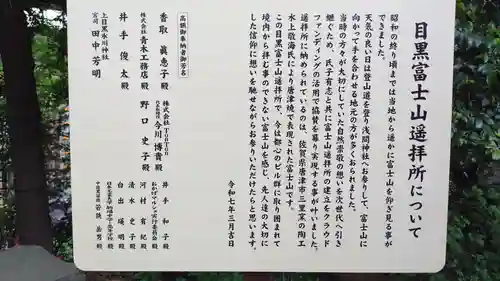 目黒富士山遥拝所について
昭和の終り頃までは当地から遥かに富士山を仰ぎ見る事が
できました。
天気の良い日は登山道を登り浅間神社へお参りして、富士山に
向かって手を合わせる地元の方が多くおられました。
当時の方々が大切にしていた自然崇敬の想いを次世代へ引き
継ぐため、氏子有志と共に富士山遥拝所の建立をクラウド
ファンディングの活用で協賛を募り実現する事が叶いました。
遥拝所に納められているのは、佐賀県唐津市三里窯の陶工
水上敬海氏により唐津焼で表現された富士山です。
この目黒富士山遥拝所で、今は都心のビル群に取り囲まれて
境内から拝む事のできない富士山を感じ、先人達の大切に
した信仰に想いを馳せながらお参りいただけたらと思います。
令和七年三月吉日
高額御奉納者御芳名
香取 眞恵子 殿
株式会社 青木工務店 殿
井手 俊太 殿
上目黒氷川神社
宮司 田中 芳明
株式会社
今川 博貴 殿
野口 史子 殿
井手 和子 殿
河村 有紀 殿
清水 史子 殿
白出 瑛明 殿